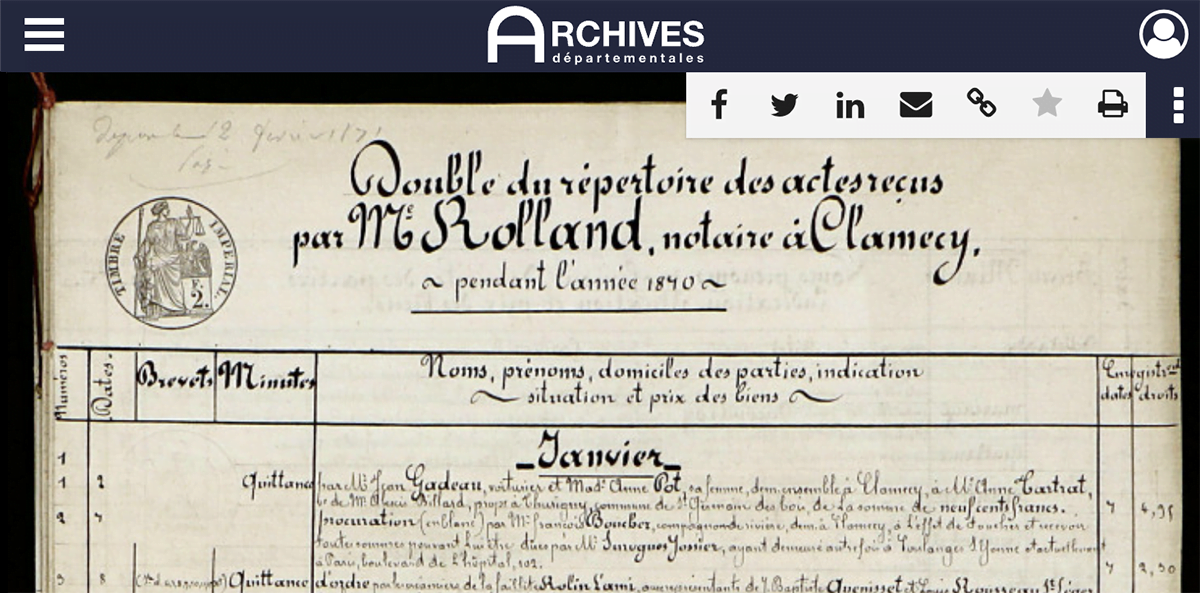 ARCHIVES
départementales
Double du répertoire des actes reçus
par Me Rolland, notaire à Clamecy,
~ pendant l'année 1870 ~
TIMBRE IMPERIAL
2.
Numéros
Dates.
Brevets
Minutes
Noms, prénoms, domiciles des parties, indication
situation et prix des biens
Enregistrent
dates droits
Janvier
1
1 2 Quittance par Mr Jean Gadeau, voiturier et Made Anne Pot, sa femme, dem. ensemble à Clamecy, à Mr Anne Tartrat,
de Mr Billard, propre à Thurigny, commune de St Germain des bois, de la somme de neuf cents francs. 7 4,95
2 procuration (en blanc) par Mr François Boucher, compagnon de rivière, dem. à Clamecy, à l'effet de toucher et recevoir
toutes sommes pouvant lui être dues par Mr Surugues Jossier, ayant demeuré autrefois à Coulanges s/Yonne et actuellement
à Paris, boulevard de l'hôpital, 102. 7 2,30
3 8 Quittance d'ordre par les créanciers de la faillite Rolin Lami, aux représentants de J. Baptiste Quenisset et Louis Rousseau St Léger